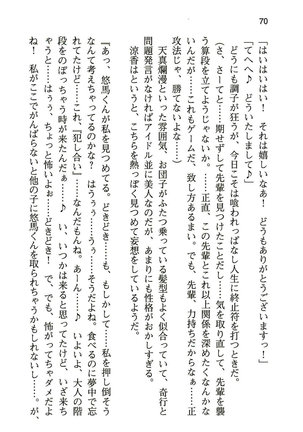 70
「はいはいはい！　それは嬉しいなあ！　どうもありがとうございます！」
「てへへ♪　どういたしまして♪」
どうにも調子が狂うが、今日こそは喰われっぱなし人生に終止符を打つときだ。
（さ、さーて……期せずして先輩を見つけたことだし……気を取り直して、先輩を襲
う算段を立てようじゃないか。……正直、この先輩とこれ以上関係を深めたくなんかな
いんだが……これもゲームだ、致し方あるまい。でも、先輩、力持ちだからなぁ……正
攻法じゃ、勝てないよな……）
天真爛漫といった雰囲気、お団子がふたつ乗っている髪型もよく似合っていて、奇行と
問題発言がなければアイドル並に美人なのだが、あまりにも性格がおかしすぎる。
涼香はというと、こちらを熱っぽく見つめて妄想をしているようだ。
『あっ、悠馬くんが私を見つめてる。どきどき……も、もしかして……私を押し倒そう
なんて考えちゃってるのかな？　はうぅぅ……うぅ……そうだよね。食べるのに夢中で忘
れてたけど、これ、〝犯し合い〟……なんだもんね。あーん……♪　いよいよ、大人の階
段をのぼっちゃう時が来たんだぁ……♪　い、いつかは来ると思ってたけど、いざ来ち
やうと……はぅぅ、ちょっと怖いよぉ……どきどき！　で、でも、怖がってちゃダメだよ
ね！　私がここでがんばらないと他の子に悠馬くんを取られちゃうかもしれない……。が、